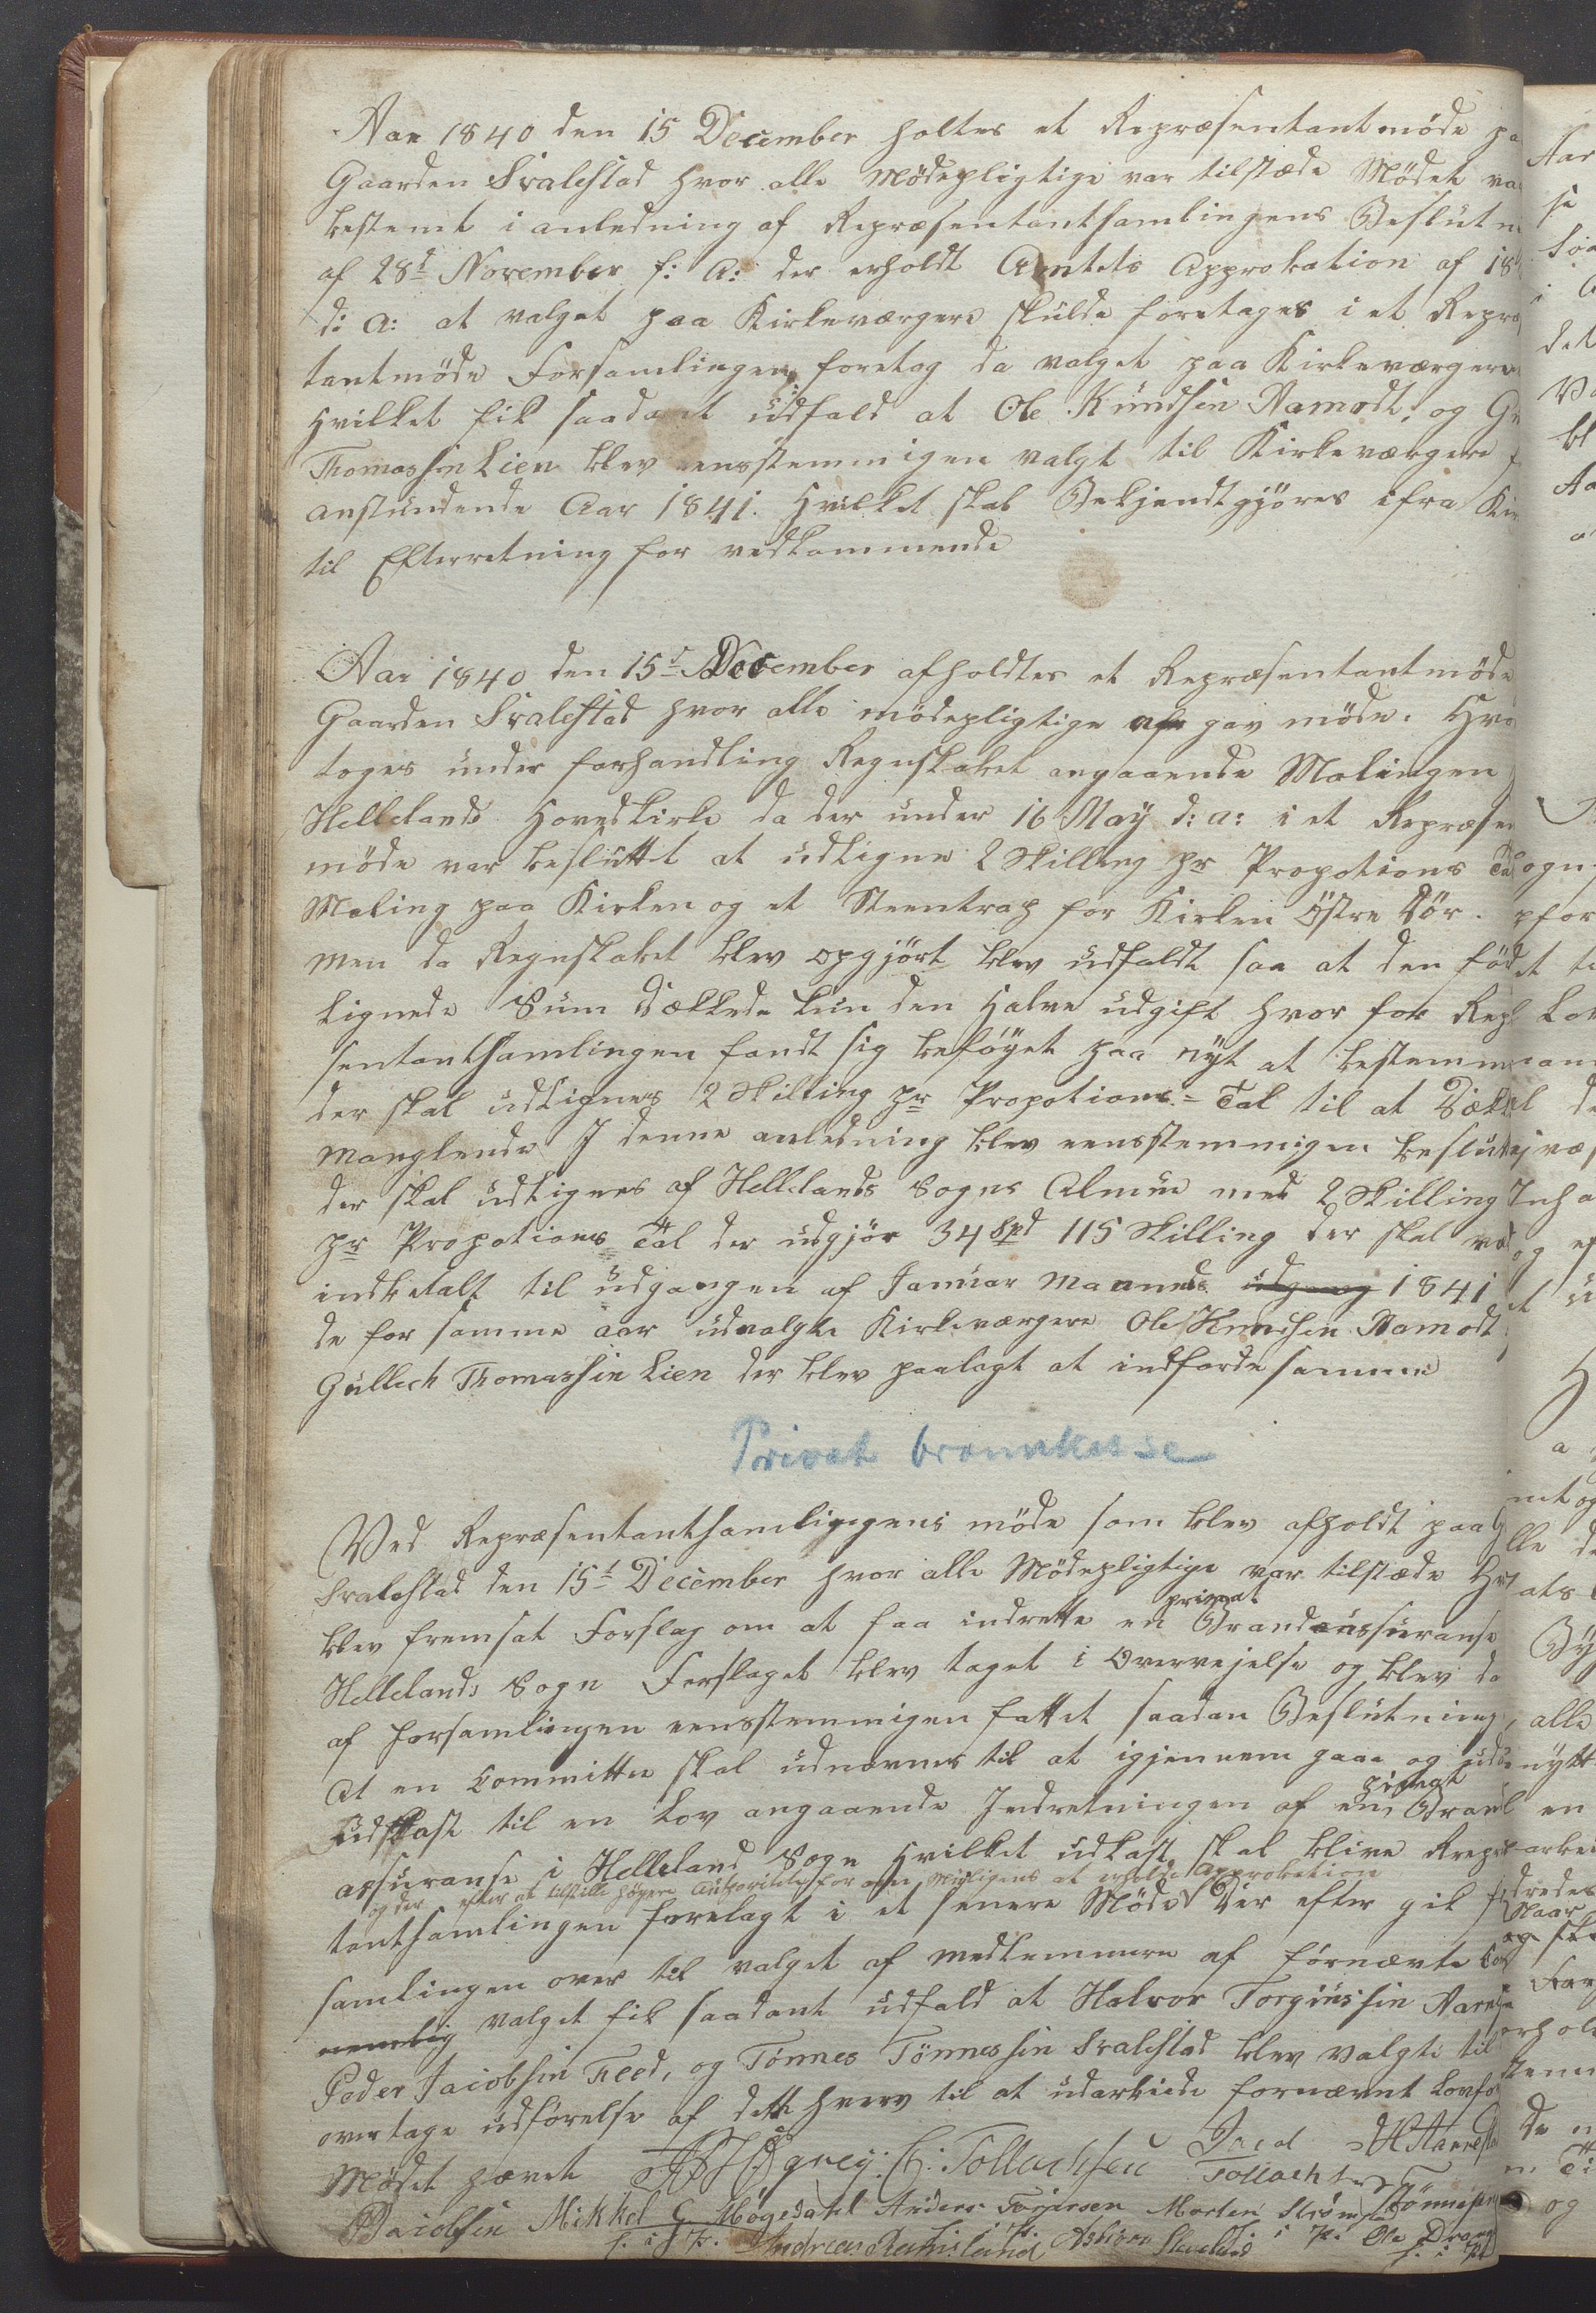 Aar 1840 den 15 December holtes et Repræsentantmöde pa
Gaarden Svalestad hvor alle Mödepligtige var tilstæde Mödet va
bestemt i anledning af Repræsentantsamlingens Beslutn
af 28d November f: A: der erholdt Amtets Approbation af 18
d: a: at valget paa Kirkeværgere skulde foretages i et Repræ
tantmöde Forsamlingen foretog da valget paa Kirkeværgere
Hvilket fik saadant udfald at Ole Knudsen Aamodt, og G
Thomassen Lien blev eensstemmigen valgt til Kirkeværgere f
anstundende Aar 1841. Hvilket skal Bekjendtgjöres ifra Kir
til Efterretning for vedkommende
Aar 1840 den 15d December afholdtes et Repræsentantmöde
Gaarden Svalestad hvor alle mödepligtige gav möde. Hvo
toges under forhandling Regnskabet angaaende Malingen
Hellelands Hovedkirke da der under 16 May d: a: i et Repræsen
möde var besluttet at udligne 2 Skilling pr Propotions Ta
Maling paa Kirken og et Steentrap for Kirken Östre Dör.
men da Regnskabet blev opgjört blev udfaldt saa at den föd
lignede Sum Dækkede kun den Halve udgift hvor for Rep
sentantsamlingen fandt sig beföyet paa nyt at bestemme
der skal udlignes 2 Skilling pr Propotions=Tal til at Dæk
manglende I denne anledning blev eensstemmigen beslut
der skal udlignes af Hellelands Sogns Almue med 2 Skilling
pr Propotions Tal der udgjör 34 Spd 115 Skilling der skal væ
indbetalt til udgangen af Januar Maaneds udgang 1841
de for samme aar udvalgte Kirkeværgere Ole Knudsen Aamodt
Gullech Thomassen Lien der blev paalagt at indfordre samme
Privat brannkasse
Ved Repræsentantsamlingens möde som blev afholdt paa G
Svalestad den 15d December hvor alle Mödepligtige var tilstæde Hv
privat
blev fremsat Forslag om at faa indrette en Brandassuranse
Hellelands Sogn Forslaget blev taget i Overvejelse og blev da
af forsamlingen eensstemmigen fattet saadan Beslutning
At en Committe skal udnævnes til at igjennem gaae og
privat
Udkast til en Lov angaaende Indretningen af en Brand
assuranse i Helleland Sogn Hvilket udkast skal blive Repræ
og der efter at tilstille högere Autoritet for om Muligens at erholde Approbation
tantsamlingen forelagt i et senere Möde Der efter gik f
samlingen over til valget af medlemmere af fornævte Co
nemlig valget fik saadant udfald at Halvor Torgiussen Aar
Peder Jacobsen Eeed, og Tönnes Tönnessen Svalestad blev valgte til
overtage udförelse af dette hverv til at udarbeide fornævnt Lovfo
Mödet hævet Tollachsen
Tollachsen
Jacobsen Mikkel G. Mögedahl Anders Torjersen Morten Tönnesen
Andreas Ramsland Asbiörn Slevland Ole Drang